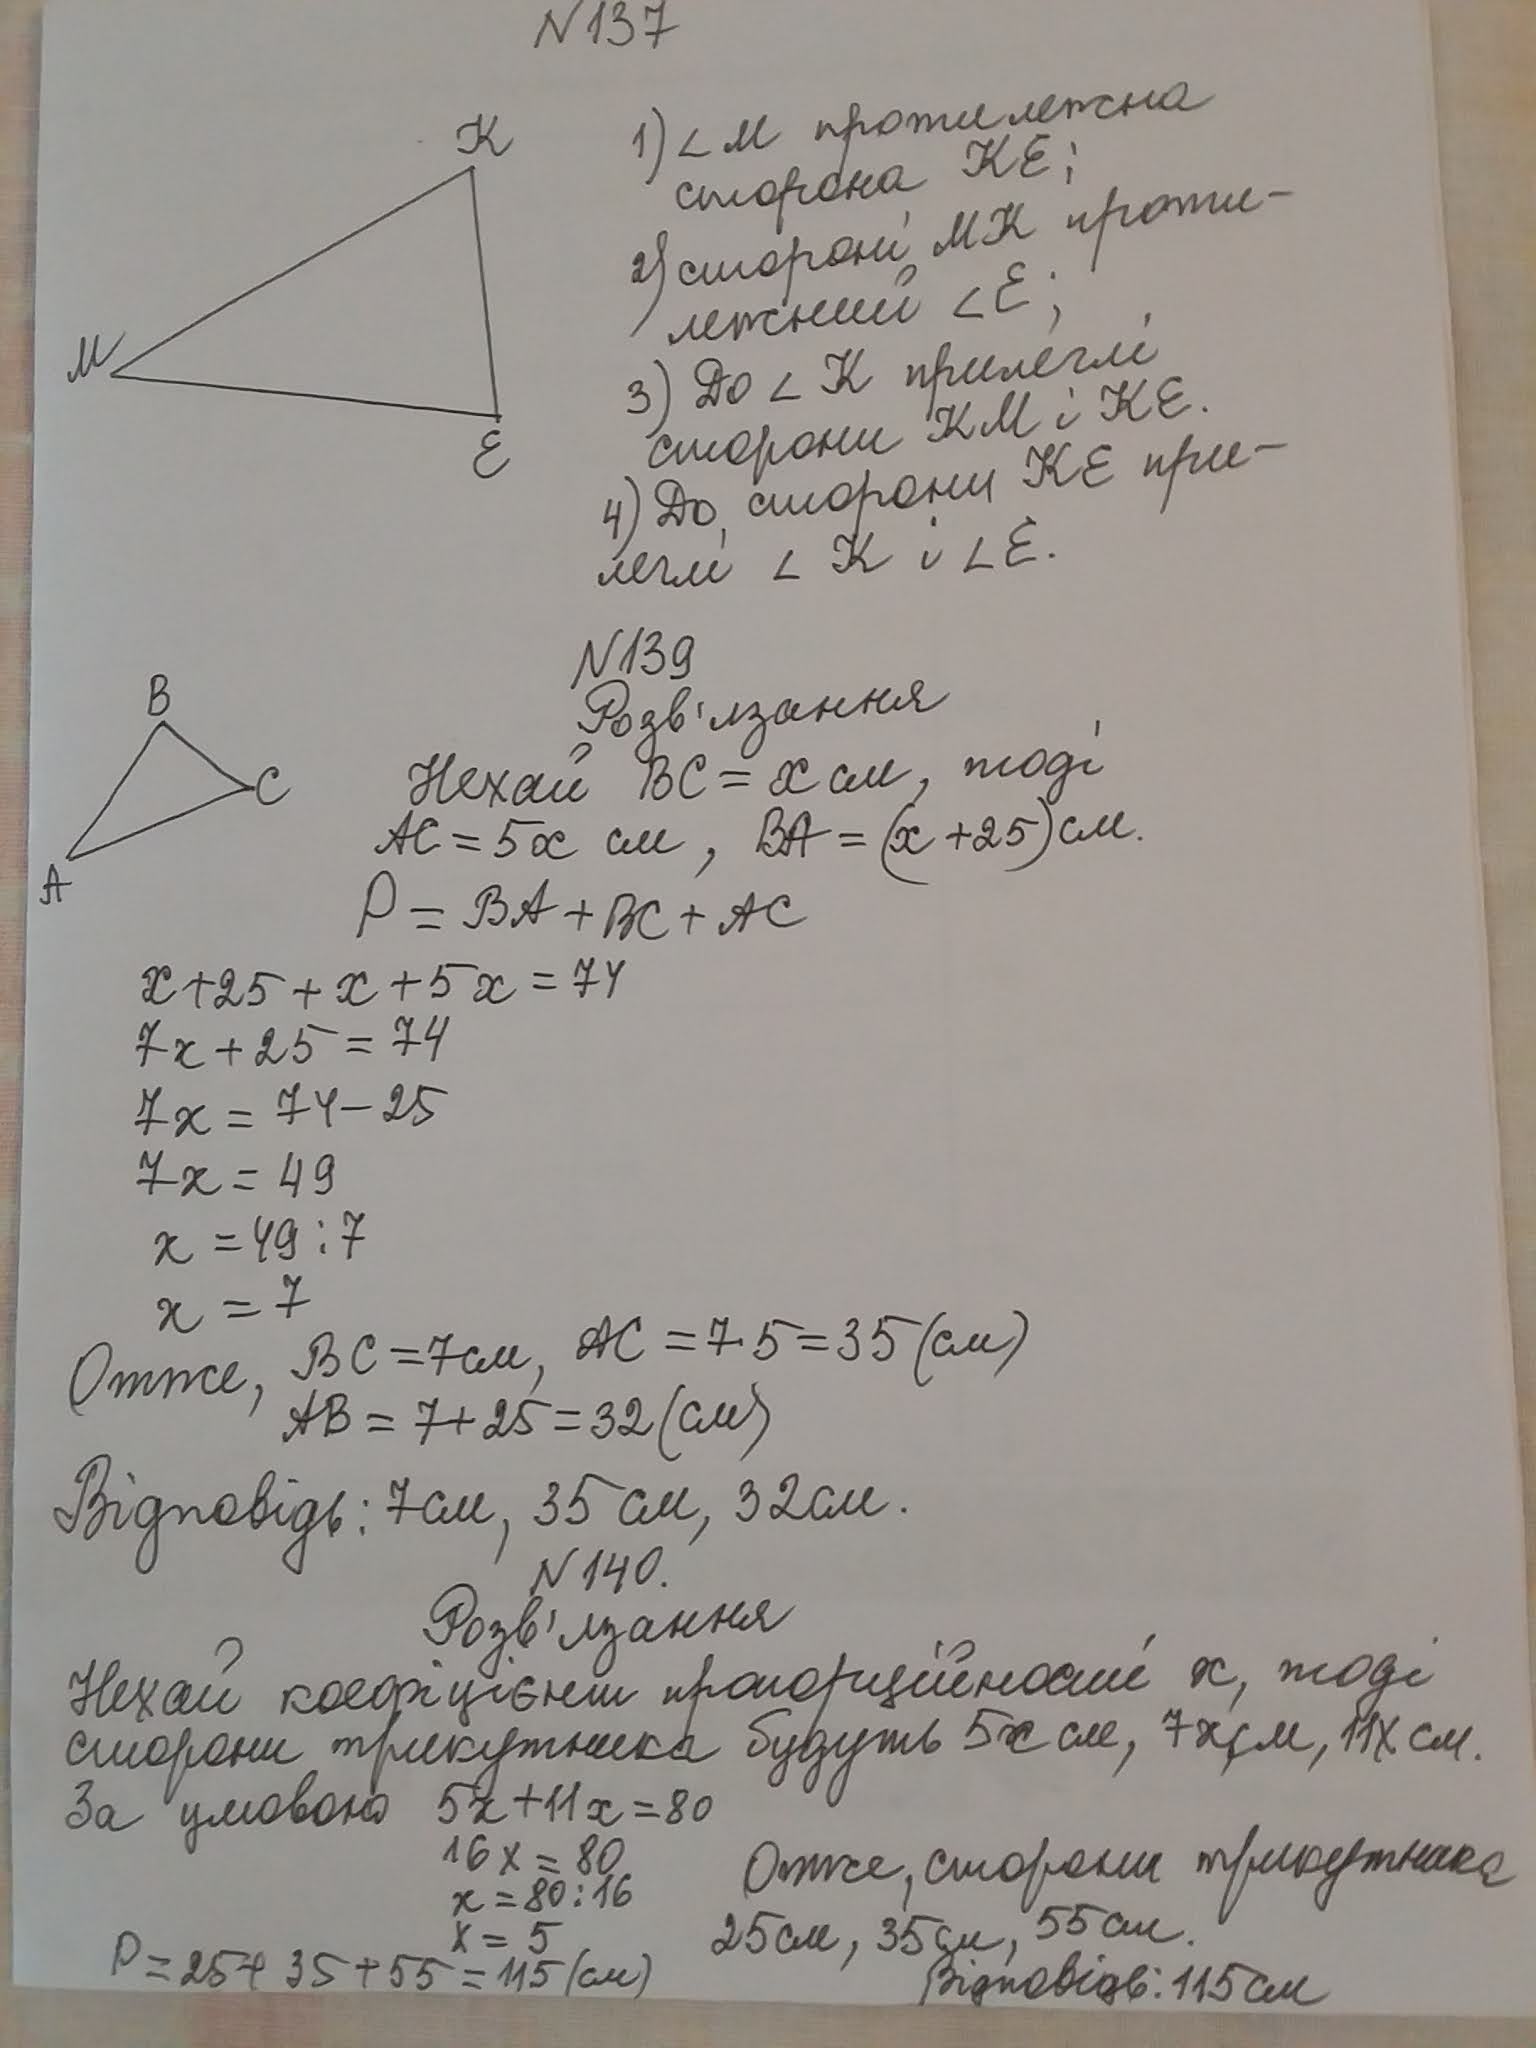 N137
K
M
E
1) ∠M протилежна
сторона KE;
2) стороні MK проти-
лежний ∠E;
3) До ∠K прилеглі
сторони KM і KE.
4) До сторони KE при-
леглі ∠K і ∠E.
N139
Розв'язання
B
C
A
Нехай BC = x см, тоді
AC = 5x см, BA = (x+25) см.
P = BA + BC + AC
x + 25 + x + 5x = 74
7x + 25 = 74
7x = 74 - 25
7x = 49
x = 49 : 7
x = 7
Отже, BC = 7см, AC = 7·5 = 35 (см)
AB = 7 + 25 = 32 (см)
Відповідь: 7см, 35 см, 32см.
N140.
Розв'язання
Нехай коефіцієнт пропорційності x, тоді
сторони трикутника будуть 5x см, 7x см, 11x см.
За умовою 5x + 11x = 80
16x = 80
x = 80 : 16
x = 5
Отже, сторони трикутника
25см, 35см, 55см.
P = 25 + 35 + 55 = 115 (см)
Відповідь: 115см